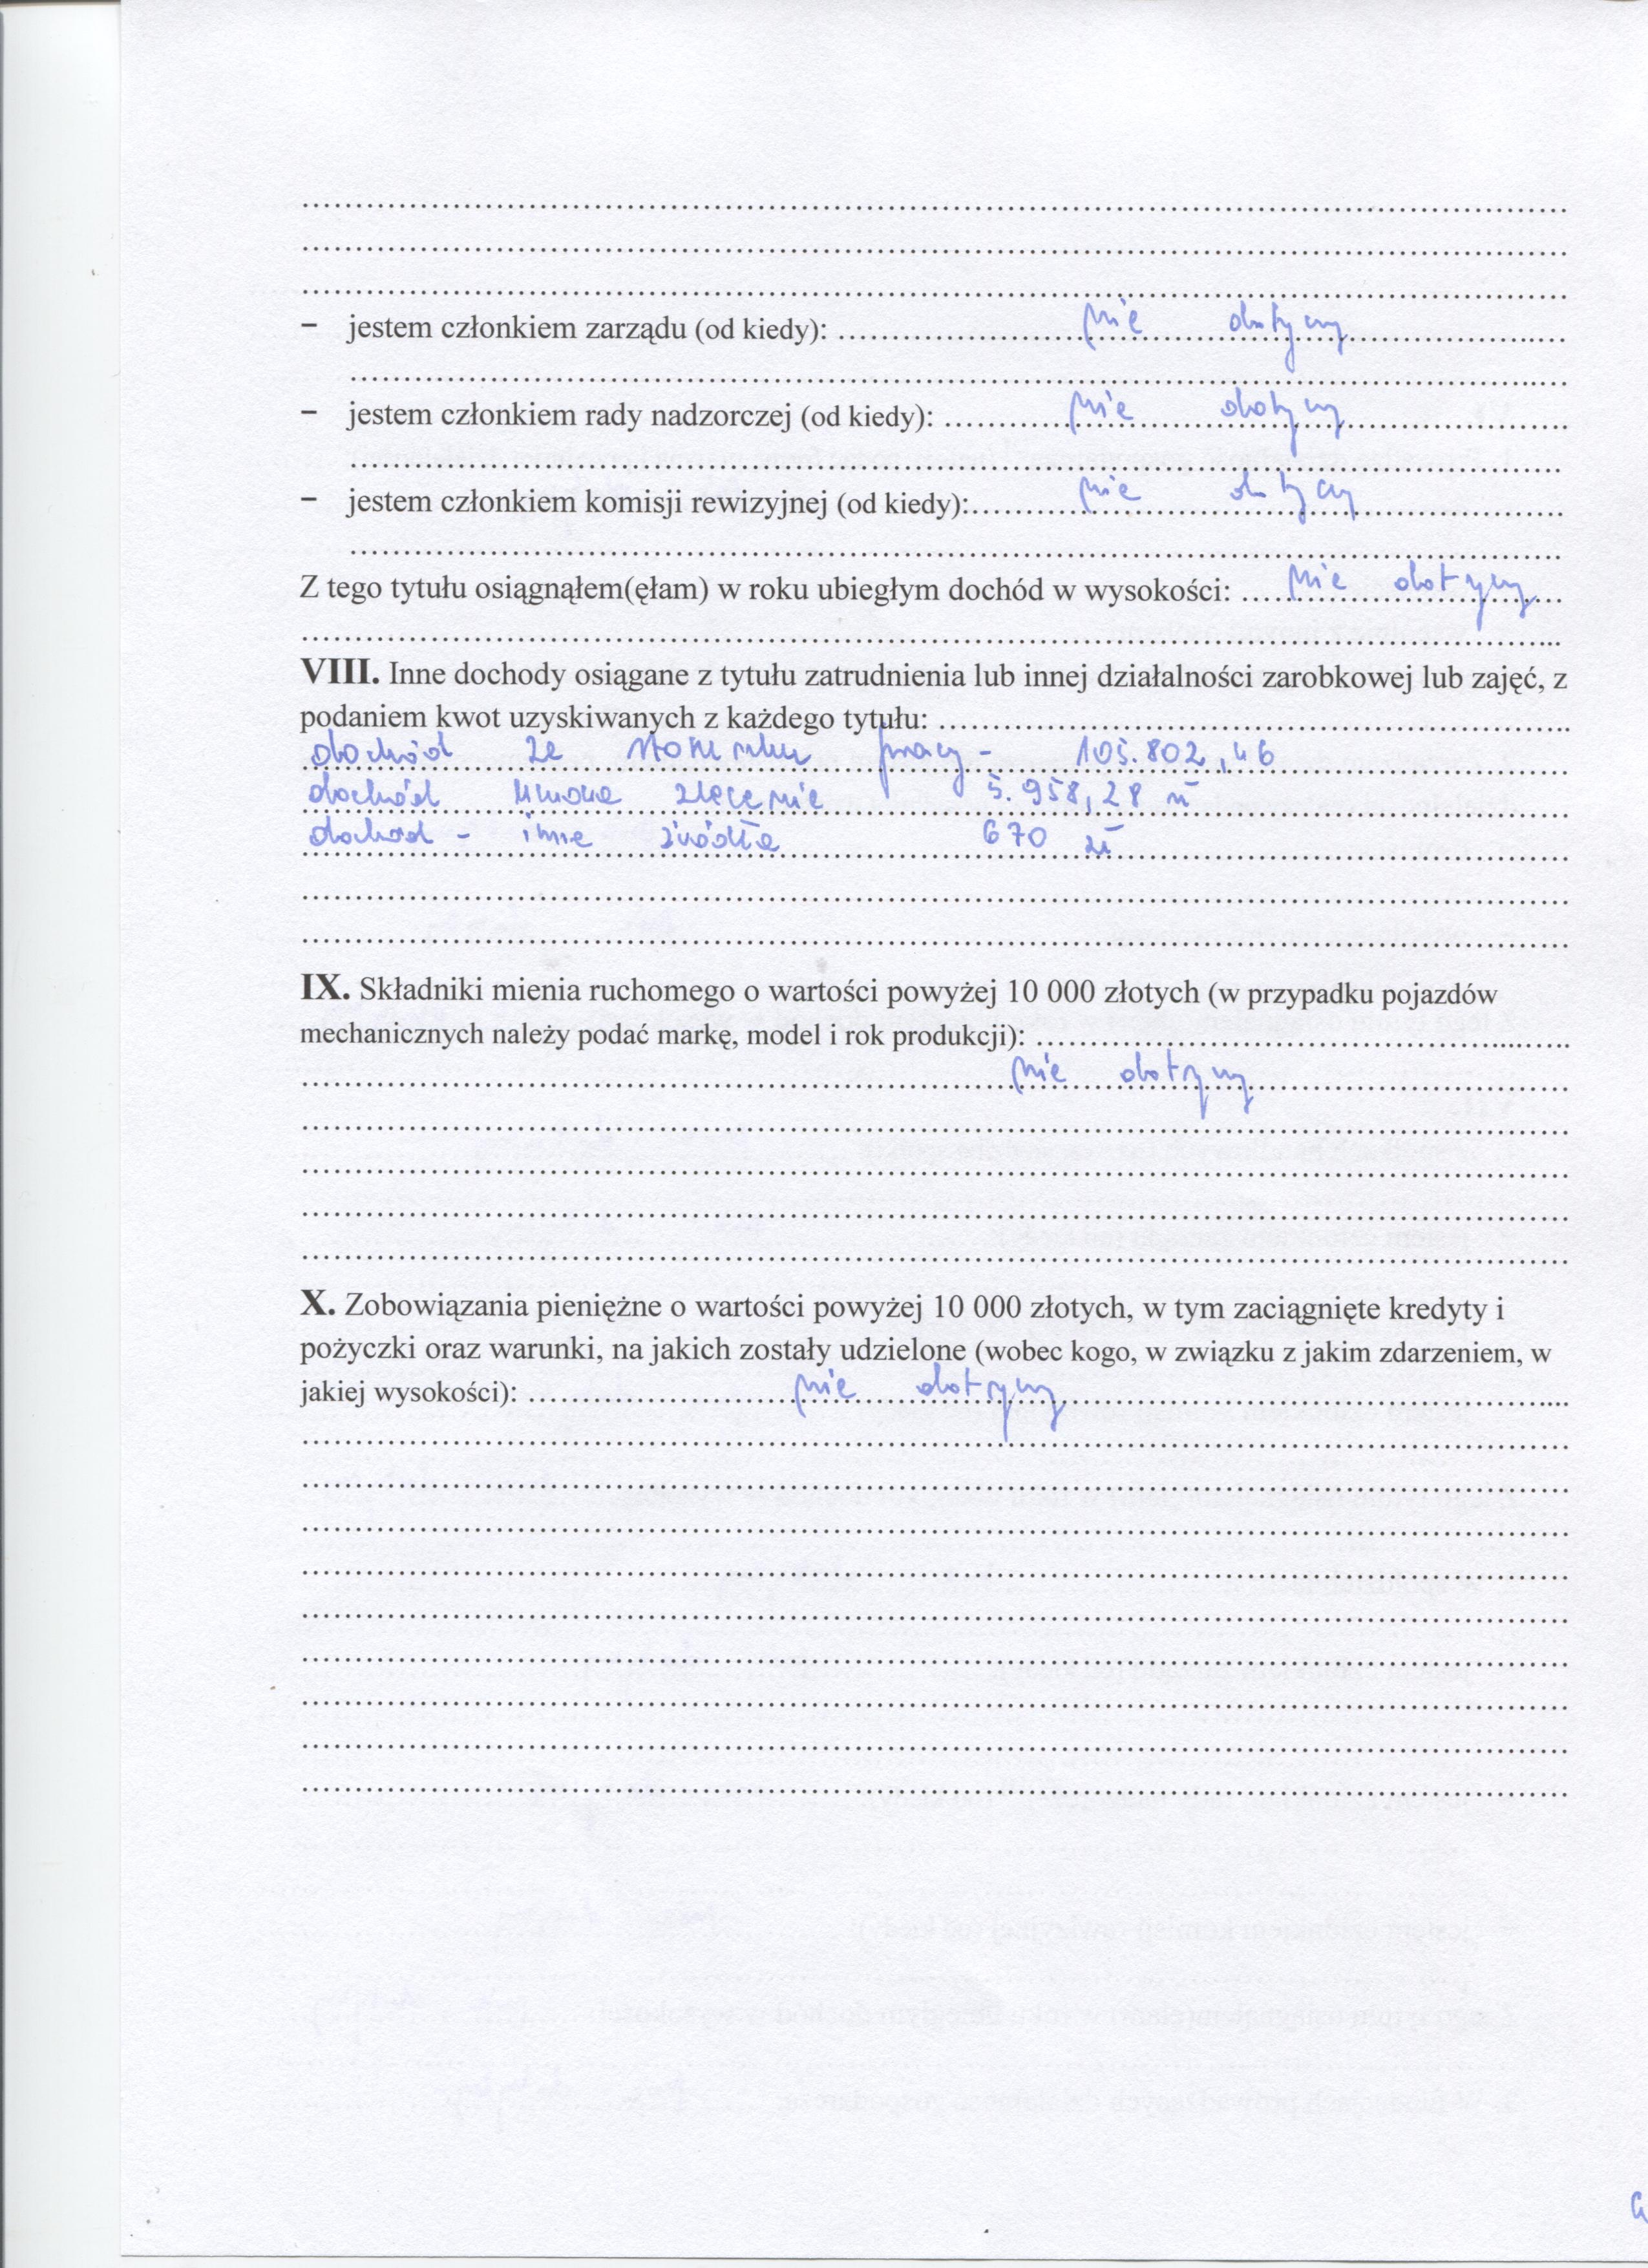 – jestem członkiem zarządu (od kiedy): nie dotyczy
– jestem członkiem rady nadzorczej (od kiedy): nie dotyczy
– jestem członkiem komisji rewizyjnej (od kiedy): nie dotyczy
Z tego tytułu osiągnąłem(ęłam) w roku ubiegłym dochód w wysokości: nie dotyczy
VIII. Inne dochody osiągane z tytułu zatrudnienia lub innej działalności zarobkowej lub zajęć, z
podaniem kwot uzyskiwanych z każdego tytułu:
dochód ze stosunku pracy - 105.802,46
dochód umowa zlecenie 5.958,28 zł
dochód - inne źródła 670 zł
IX. Składniki mienia ruchomego o wartości powyżej 10 000 złotych (w przypadku pojazdów
mechanicznych należy podać markę, model i rok produkcji):
nie dotyczy
X. Zobowiązania pieniężne o wartości powyżej 10 000 złotych, w tym zaciągnięte kredyty i
pożyczki oraz warunki, na jakich zostały udzielone (wobec kogo, w związku z jakim zdarzeniem, w
jakiej wysokości): nie dotyczy